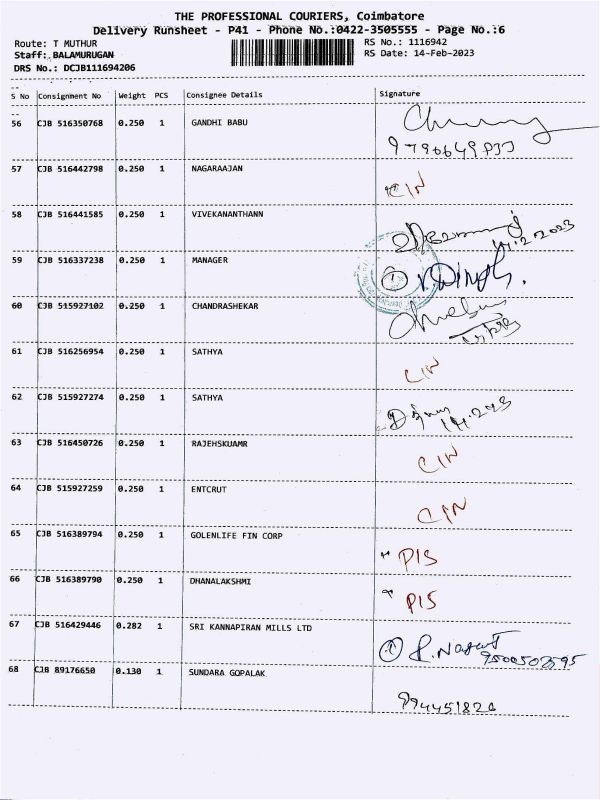 THE PROFESSIONAL COURIERS, Coimbatore
Delivery Runsheet - P41 - Phone No.:0422-3505555 - Page No.:6
Route: T MUTHUR RS No.: 1116942
Staff: BALAMURUGAN RS Date: 14-Feb-2023
DRS No.: DCJB111694206
S No Consignment No Weight PCS Consignee Details Signature
56 CJB 516350768 0.250 1 GANDHI BABU
57 CJB 516442798 0.250 1 NAGARAAJAN CIN
58 CJB 516441585 0.250 1 VIVEKANANTHANN 14.2.2023
59 CJB 516337238 0.250 1 MANAGER 1
60 CJB 515927102 0.250 1 CHANDRASHEKAR
61 CJB 516256954 0.250 1 SATHYA CIN
62 CJB 515927274 0.250 1 SATHYA 14.2023
63 CJB 516450726 0.250 1 RAJEHSKUAMR CIN
64 CJB 515927259 0.250 1 ENTCRUT CIN
65 CJB 516389794 0.250 1 GOLENLIFE FIN CORP PIS
66 CJB 516389790 0.250 1 DHANALAKSHMI PIS
67 CJB 516429446 0.282 1 SRI KANNAPIRAN MILLS LTD 1
68 CJB 89176650 0.130 1 SUNDARA GOPALAK